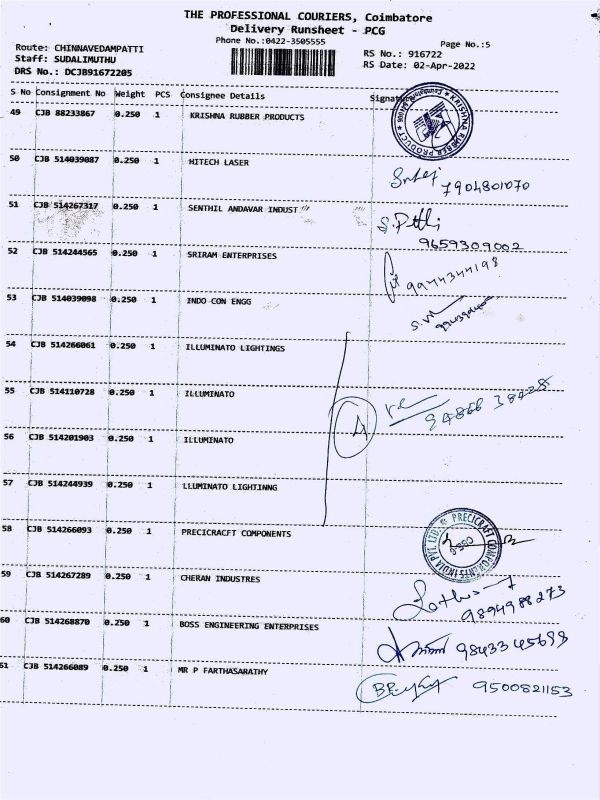 THE PROFESSIONAL COURIERS, Coimbatore
Delivery Runsheet - PCG
Phone No.:0422-3505555
Page No.:5
Route: CHINNAVEDAMPATTI
RS No.: 916722
Staff: SUDALIMUTHU
RS Date: 02-Apr-2022
DRS No.: DCJB91672205
S No Consignment No Weight PCS Consignee Details Signature
49 CJB 88233867 0.250 1 KRISHNA RUBBER PRODUCTS
KRISHNA RUBBER PRODUCT
50 CJB 514039087 0.250 1 HITECH LASER
7904801070
51 CJB 514267317 0.250 1 SENTHIL ANDAVAR INDUST
9659309002
52 CJB 514244565 0.250 1 SRIRAM ENTERPRISES
9944344198
53 CJB 514039098 0.250 1 INDO CON ENGG
54 CJB 514266061 0.250 1 ILLUMINATO LIGHTINGS
55 CJB 514110728 0.250 1 ILLUMINATO
94866 38428
56 CJB 514201903 0.250 1 ILLUMINATO
4
57 CJB 514244939 0.250 1 LLUMINATO LIGHTINNG
58 CJB 514266093 0.250 1 PRECICRACFT COMPONENTS
PRECICRAFT COMPONENTS INDIA PVT. LTD.
59 CJB 514267289 0.250 1 CHERAN INDUSTRES
9894988273
60 CJB 514268870 0.250 1 BOSS ENGINEERING ENTERPRISES
9843345699
61 CJB 514266089 0.250 1 MR P FARTHASARATHY
9500821153